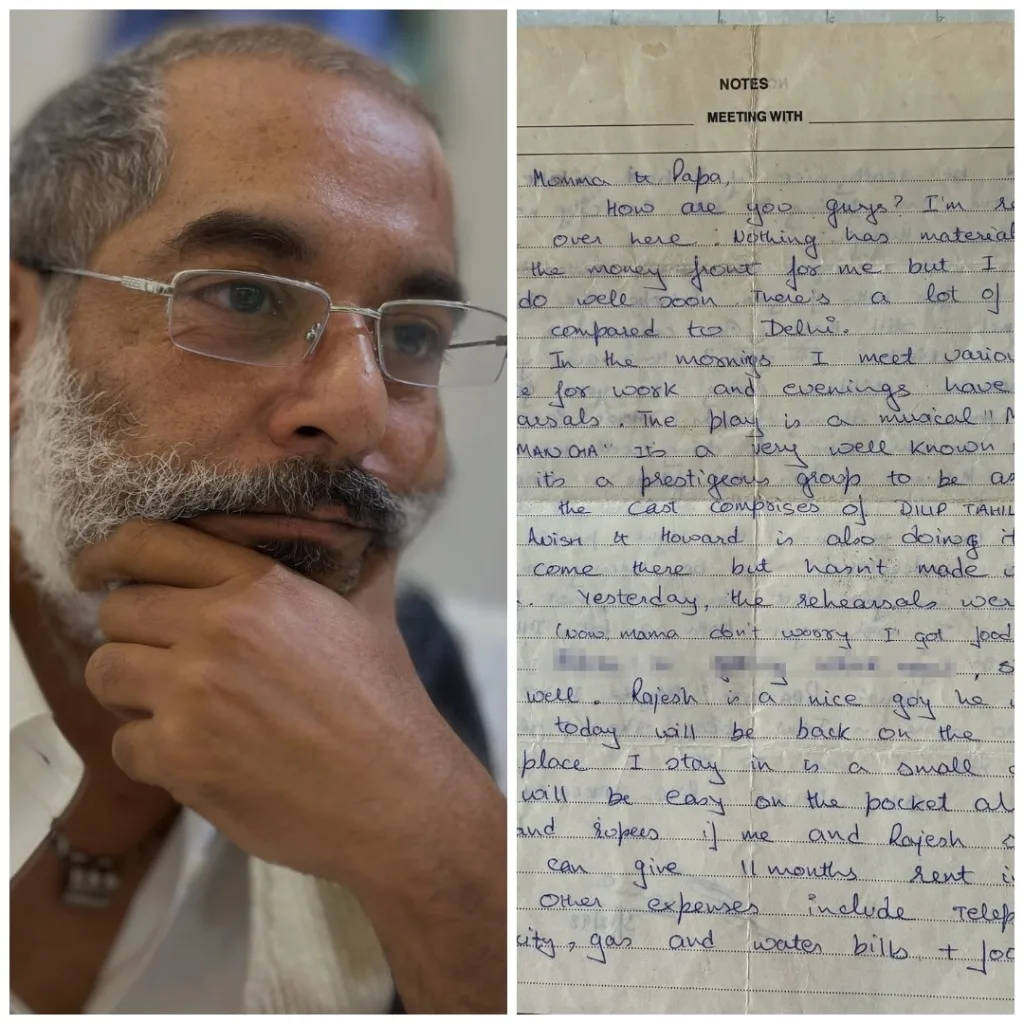 NOTES
MEETING WITH
Momma & Papa,
How are you guys? I'm
over here. Nothing has material
the money front for me but I
do well soon There's a lot of
compared to Delhi.
In the mornings I meet variou
e for work and evenings have
arsals. The play is a musical "M
MANCHA" Its a very well known
it's a prestigeous group to be as
the cast comprises of DILIP TAHIL
Avish & Howard is also doing it
come there but hasn't made
. Yesterday, the rehearsals wer
(now mama don't worry I got food
, s
well. Rajesh is a nice guy he
today will be back on the
place I stay in is a small
will be easy on the pocket al
and rupees if me and Rajesh
can give 11 months rent i
Other expenses include Telep
city, gas and water bills + foo